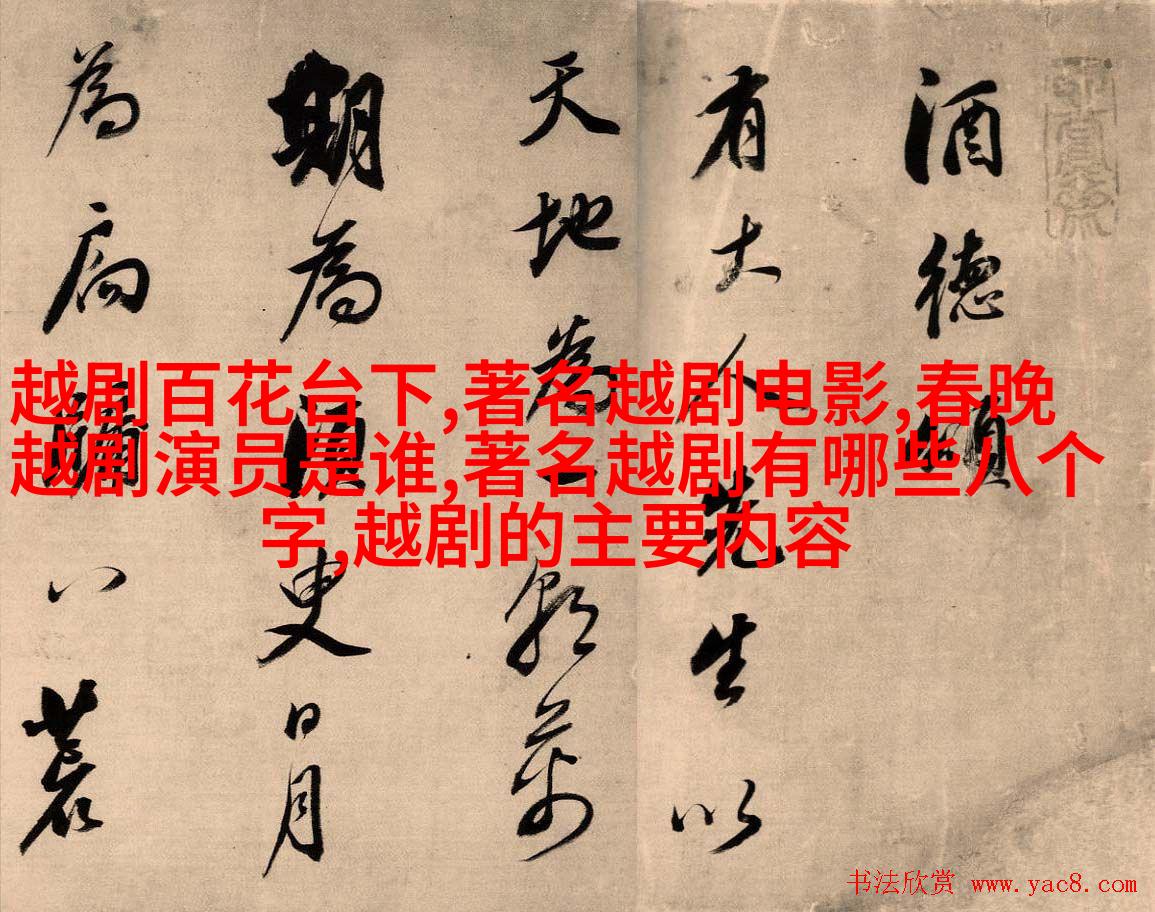 酒德頌
有大人先生以
天地為一朝萬
期為須臾日月
為扃牖八荒
越剧百花台下,著名越剧电影,春晚
越剧演员是谁,著名越剧有哪些八个
字,越剧的主要内容
书法欣赏 www.yac8.com